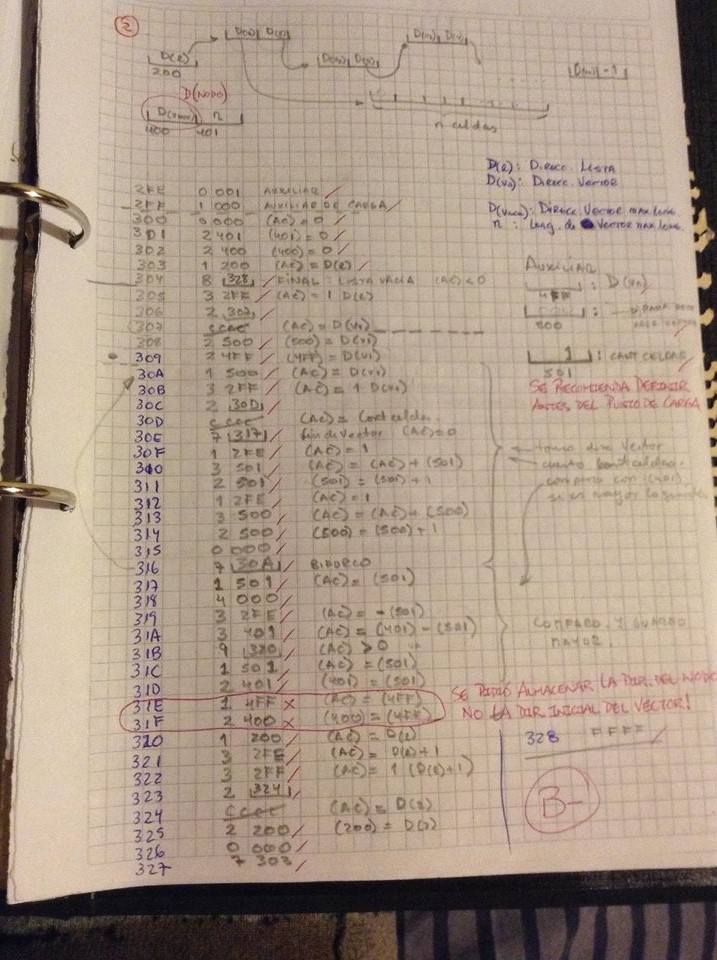 2
D(ℓ)
200
D(NODO)
D(Vmax) n
400 401
n celdas
D(ℓ): DIRECC. LISTA
D(V0): DIRECC. VECTOR
D(Vmax): DIRECC. VECTOR MAX LONG.
n : LONG. de VECTOR MAX LONG.
2FE 0 001 AUXILIAR
2FF 1 000 AUXILIAR DE CARGA
300 0 000 (AC) = 0
301 2 401 (401) = 0
302 2 400 (400) = 0
303 1 200 (AC) = D(ℓ)
304 8 328 FINAL: LISTA VACIA (AC) < 0
305 3 2FE (AC) = 1 D(ℓ)
306 2 307
307 CCCC (AC) = D(V1)
308 2 500 (500) = D(V1)
309 2 4FF (4FF) = D(V1)
30A 1 500 (AC) = D(V1)
30B 3 2FF (AC) = 1 D(V1)
30C 2 30D
30D CCCC (AC) = Cont celda
30E 7 317 fin de vector (AC) = 0
30F 1 2FE (AC) = 1
310 3 501 (AC) = (AC) + (501)
311 2 501 (501) = (501) + 1
312 1 2FE (AC) = 1
313 3 500 (AC) = (AC) + (500)
314 2 500 (500) = (500) + 1
315 0 000
316 7 30A BIFURCO
317 1 501 (AC) = (501)
318 4 000
319 3 2FE (AC) = -(501)
31A 3 401 (AC) = (401) - (501)
31B 9 320 (AC) > 0
31C 1 501 (AC) = (501)
31D 2 401 (401) = (501)
31E 1 4FF x (AC) = (4FF)
31F 2 400 x (400) = (4FF)
320 1 200 (AC) = D(ℓ)
321 3 2FE (AC) = D(ℓ) + 1
322 3 2FF (AC) = 1 (D(ℓ) + 1)
323 2 324
324 CCCC (AC) = D(2)
325 2 200 (200) = D(2)
326 0 000
327 7 303
AUXILIAR
4FF : D(Vn)
500
1 : CANT CELDAS
501
SE RECOMIENDA DEFINIR
ANTES DEL PUNTO DE CARGA
tomo dir. Vector
cuento cant celdas.
comparo con (401).
si es mayor lo guardo
COMPARO Y GUARDO
MAYOR.
SE PIDIÓ ALMACENAR LA DIR. DEL NODO
NO LA DIR INICIAL DEL VECTOR!
328 FFFF
B-